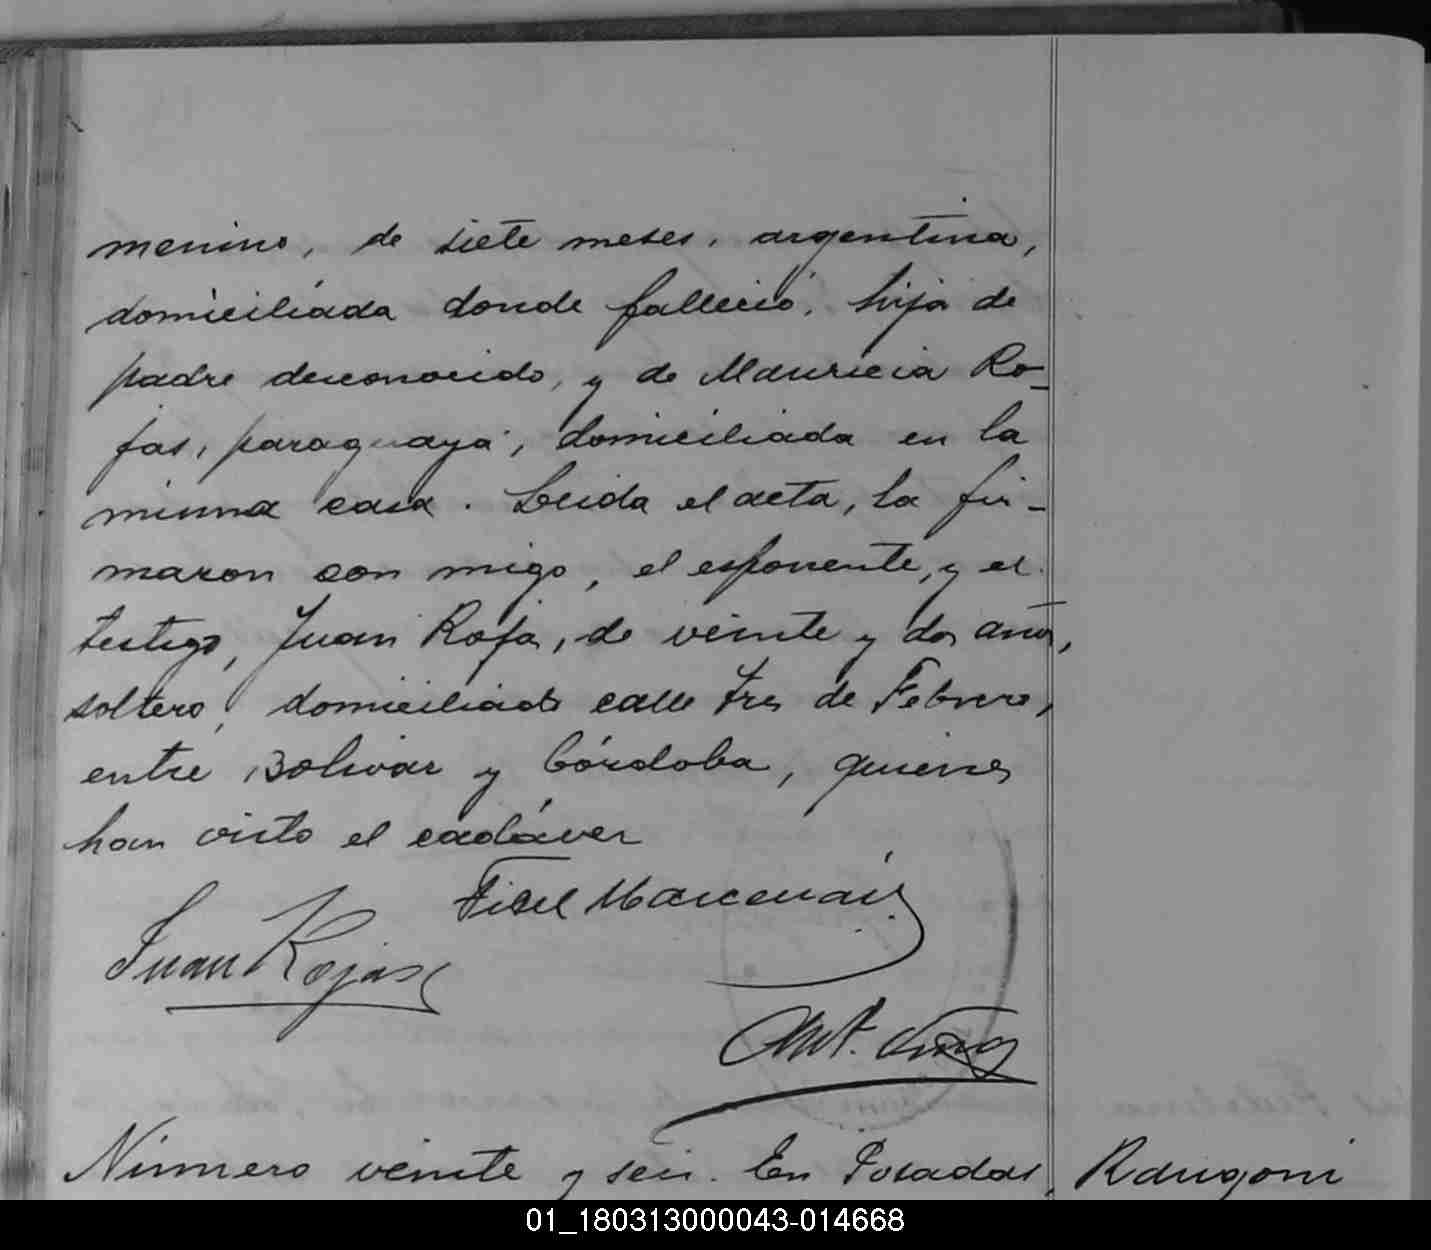 menino, de siete meses, argentina,
domiciliada donde falleció, hija de
padre desconocido, y de Mauricia Ro-
jas, paraguaya, domiciliada en la
misma casa. Leida el acta, la fir-
maron con migo, el esponente, y el
testigo, Juan Rojas, de veinte y dos años,
soltero, domiciliado calle Tres de Febrero,
entre Bolivar y Córdoba, quienes
han visto el cadáver
Fidel
Juan Rojas
Ant.
Número veinte y seis. En Posadas, Rangoni
01_180313000043-014668